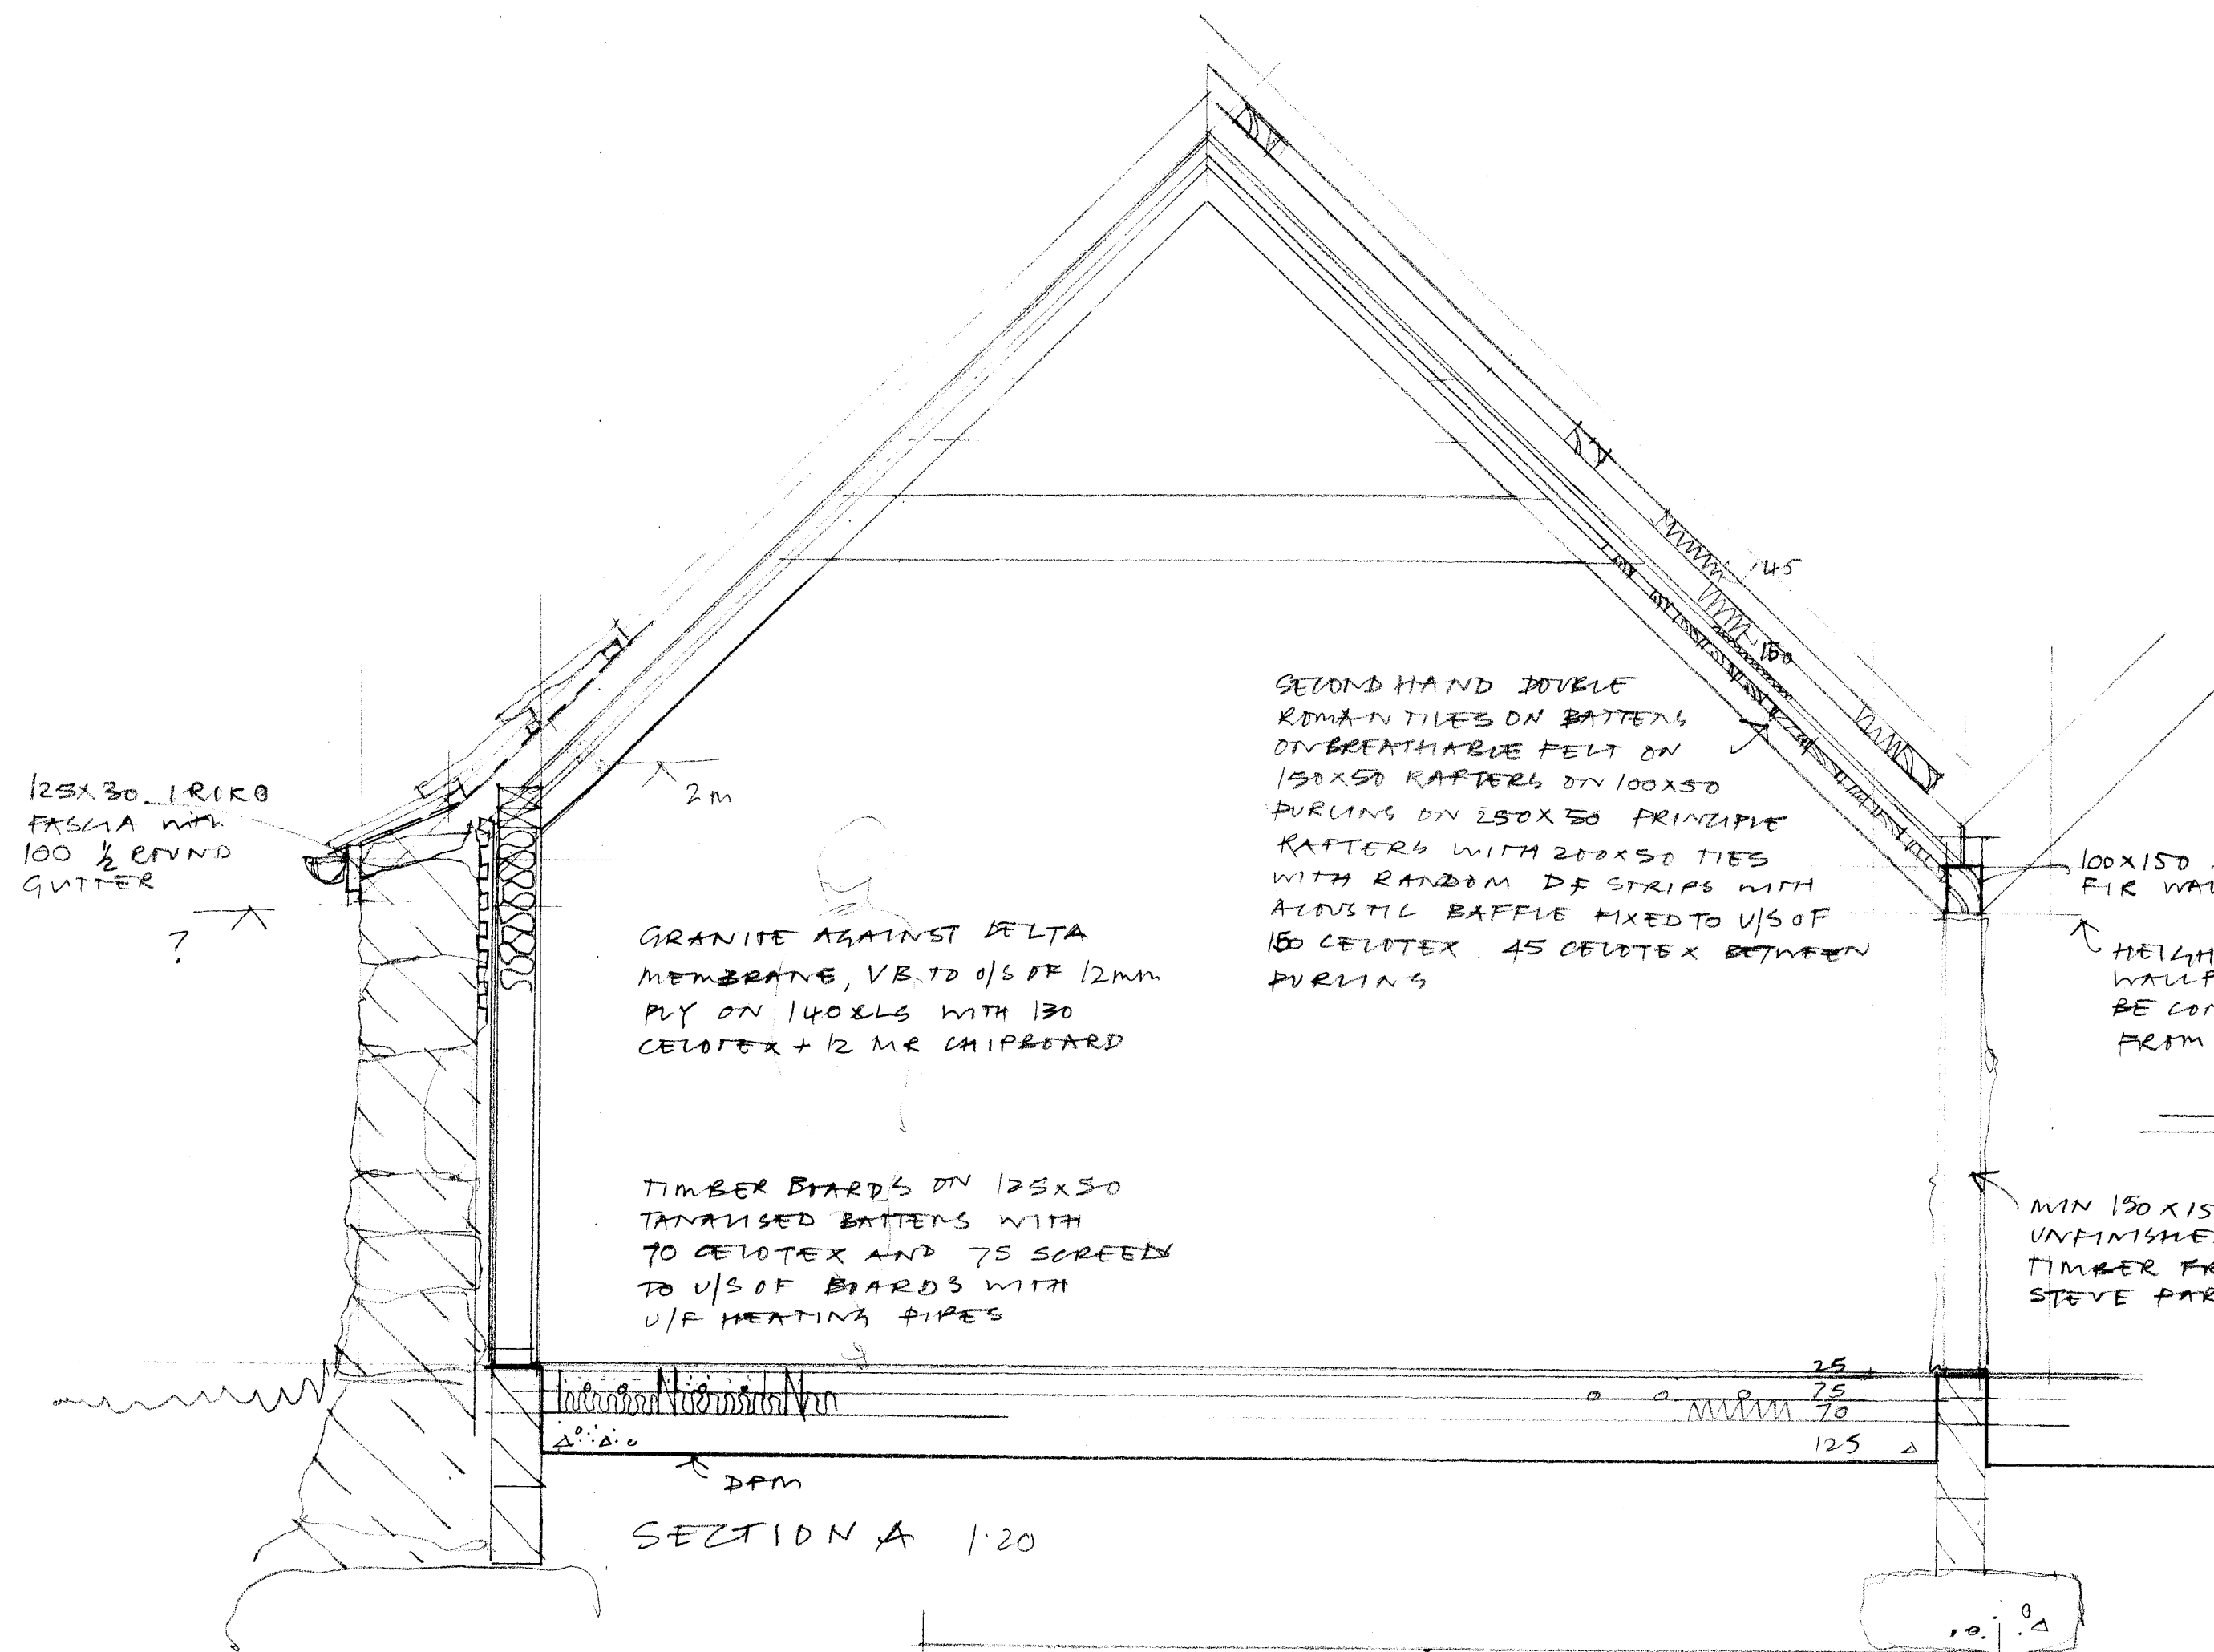 125X30 IROKO
FASCIA WITH
100 ½ ROUND
GUTTER
?
2m
145
150
SECOND HAND DOUBLE
ROMAN TILES ON BATTENS
ON BREATHABLE FELT ON
150X50 RAFTERS ON 100X50
PURLINS ON 250X50 PRINCIPLE
RAFTERS WITH 200X50 TIES
WITH RANDOM DF STRIPS WITH
ACOUSTIC BAFFLE FIXED TO U/S OF
150 CELOTEX. 45 CELOTEX BETWEEN
PURLINS
GRANITE AGAINST DELTA
MEMBRANE, VB TO O/S OF 12mm
PLY ON 140 XLS WITH 130
CELOTEX + 12 MR CHIPBOARD
100X150
FIR WAL
HEIGH
WALLP
BE CON
FROM
TIMBER BOARDS ON 125X50
TANALISED BATTENS WITH
70 CELOTEX AND 75 SCREED
TO U/S OF BOARDS WITH
U/F HEATING PIPES
MIN 150X15
UNFINISHE
TIMBER FR
STEVE PAR
25
75
70
125
DPM
SECTION A 1:20